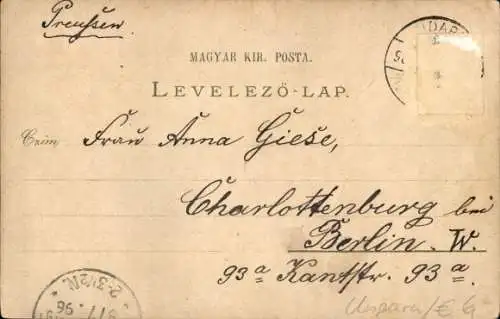 Preußen.
MAGYAR KIR. POSTA.
LEVELEZŐ-LAP.
Czim: Frau Anna Giese,
Charlottenburg bei
Berlin. W.
93ª Kantstr. 93ª.
Ungarn/